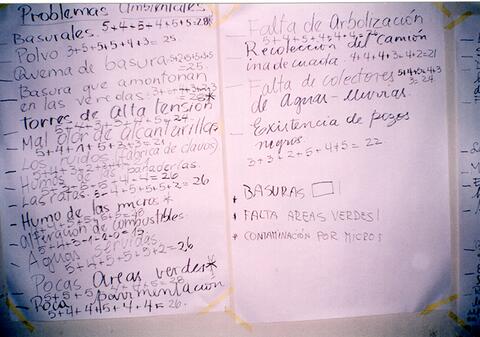 Problemas Ambientales
Basurales 5+4+5+4+5+5=28
Polvo 3+5+5+5+4+3= 25
Quema de basura
= 25
Basura que amontonan
en las veredas
Torres de alta tension*
Mal olor de alcantarillas
Los ruidos (fábrica de clavos)
Humos de las panaderías.
= 26
Las ratas 26
Humo de las micros *
alteración de combustibles.
Aguas servidas
5+4+5+5+5+2=26
Pocas Areas verdes*
Poca pavimentación
5+4+4+5+4+4= 26.
Falta de Arbolización
Recolección del camión
inadecuada. 4+4+4+3+4+2=21
Falta de colectores 5+4+5+4+3
de Aguas-lluvias. 3= 24
Existencia de pozos
negros.
3+3+2+5+4+5= 22
* BASURAS
* FALTA AREAS VERDES
* CONTAMINACIÓN POR MICROS